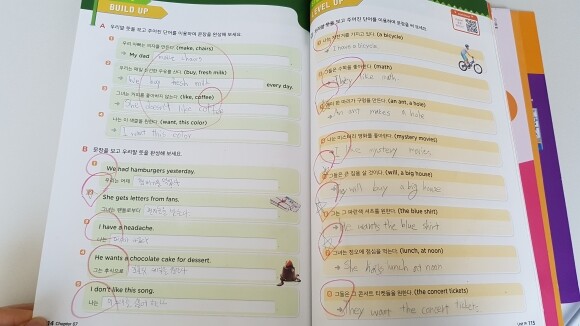 BUILD UP
A 우리말 뜻을 보고 주어진 단어를 이용하여 문장을 완성해 보세요.
우리 아빠는 의자를 만든다. (make, chairs)
→ My dad make chairs
우리는 매일 신선한 우유를 산다. (buy, fresh milk)
buy fresh milk every day.
그녀는 커피를 좋아하지 않는다. (like, coffee)
→ She doesn't like coffee
나는 이 색깔을 원한다. (want, this color)
→ I want this color
B 문장을 보고 우리말 뜻을 완성해 보세요.
We had hamburgers yesterday.
우리는 어제
She gets letters from fans.
그녀는 팬들로부터
I have a headache.
나는
He wants a chocolate cake for dessert.
그는 후식으로
I don't like this song.
나는
Chapter 07
LEVEL UP
뜻을 보고 주어진 단어를 이용하여 문장을 써 보세요.
나는 자전거를 가지고 있다. (a bicycle)
→ I have a bicycle
그들은 수학을 좋아한다. (math)
→ They like math
개미 한 마리가 구멍을 만든다. (an ant, a hole)
an ant makes a hole
나는 미스터리 영화를 좋아한다. (mystery movies)
→ I like mystery movies
그들은 큰 집을 살 것이다. (will, a big house)
will buy a big house
그는 그 파란색 셔츠를 원한다. (the blue shirt)
→ He wants the blue shirt
그녀는 정오에 점심을 먹는다. (lunch, at noon)
→ She has lunch at noon
그들은 그 콘서트 티켓들을 원한다. (the concert tickets)
They want the concert tickets
115